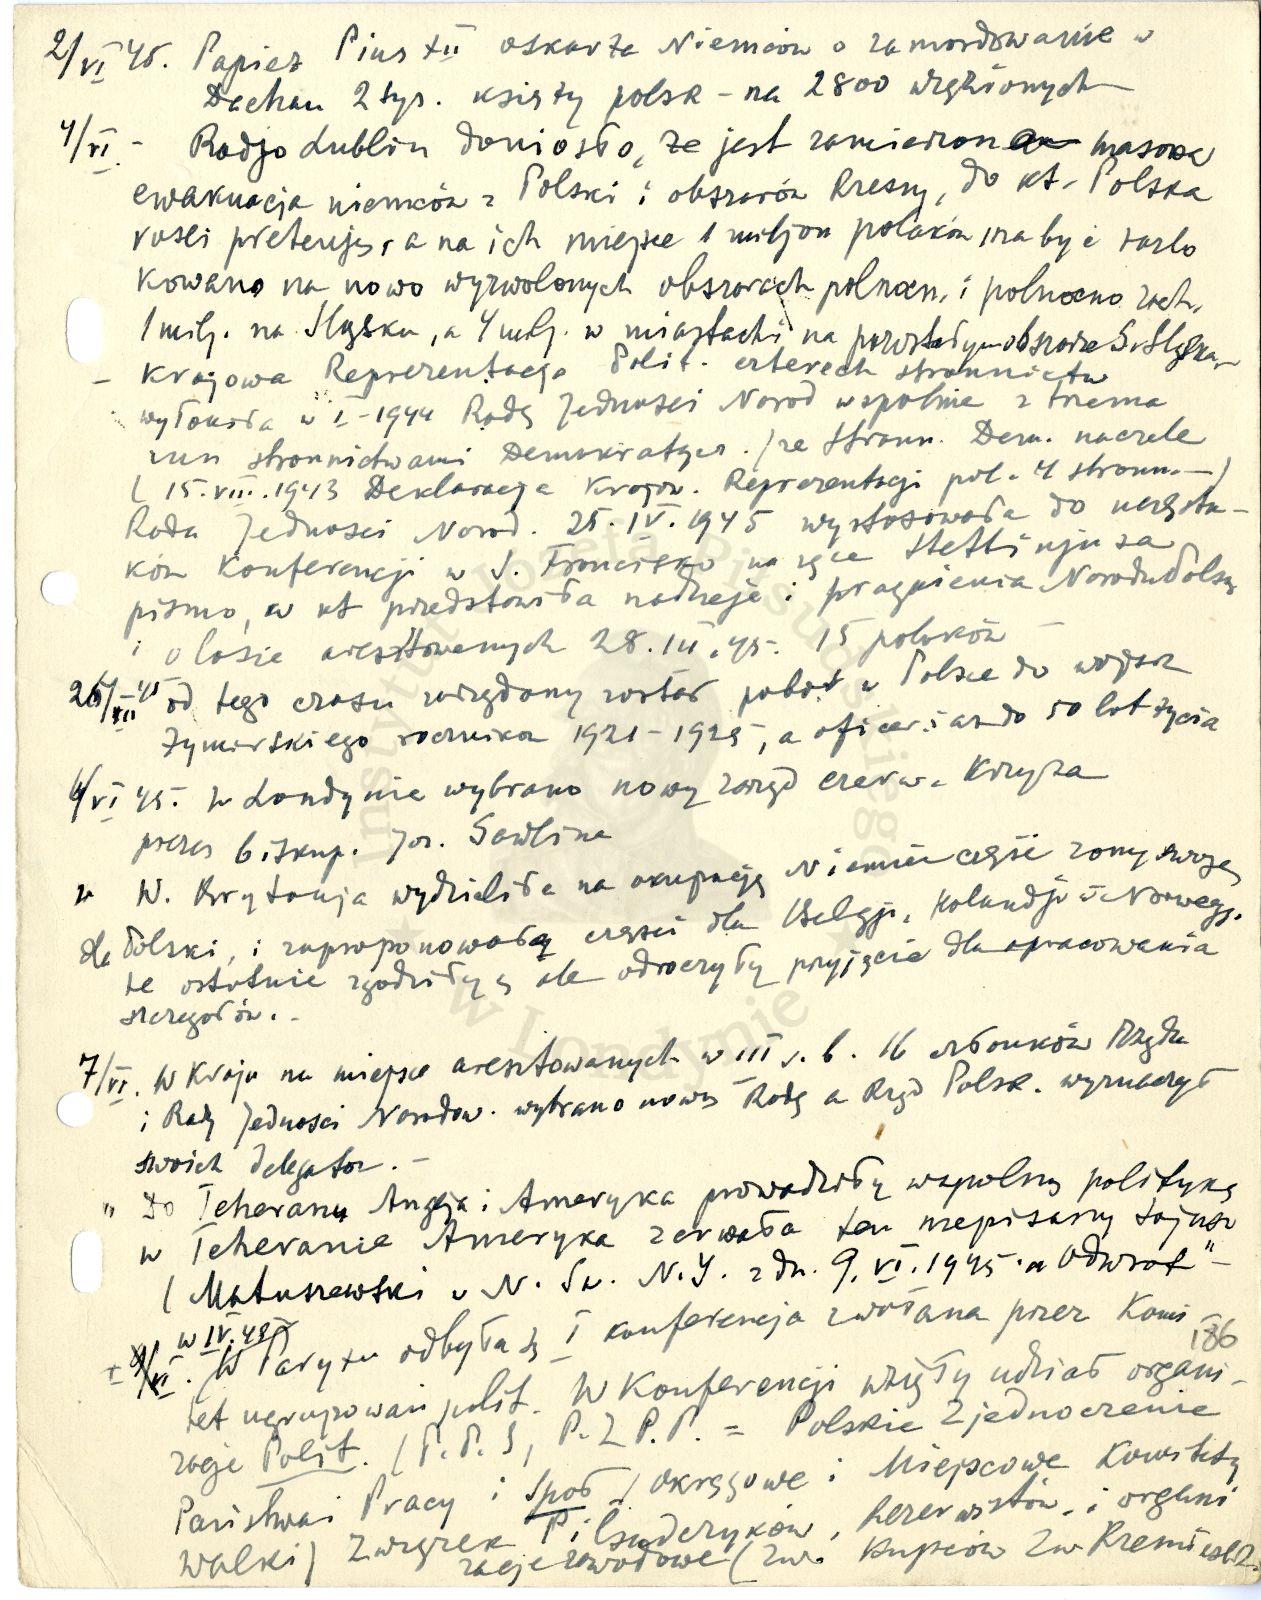 2/VI 45. Papież Pius XII oskarża Niemców o zamordowanie w
Dachau 2 tys. księży polsk – na 2800 więzionych
4/VI. – Radjo Lublin doniosło, że jest zamierzona masowa
ewakuacja niemców z Polski i obszarów Rzeszy, do kt. Polska
rości pretensję, a na ich miejsce 1 miljon polaków ma być ulo
kowano na nowo wyzwolonych obszarach północn. i północno zach.
1 milj. na Śląsku, a 4 milj. w miastach i na pozostałym obszarze G. Śląska
– Krajowa Reprezentacja Polit. czterech stronnictw
wyłoniła w I – 1944 Radę Jedności Narod wspólnie z trzema
inn stronnictwami Demokratycz. /ze Stronn. Dem. na czele
( 15.VIII.1943 Deklaracja Krajow. Reprezentacji pol. 4 stronn. – )
Rada Jedności Narod. 25.IV.1945 wystosowała do uczestni –
ków Konferencji w S. Francisko na ręce Stettinjusa
pismo, w kt przedstawiła nadzieje i pragnienia Narodu Polsk
i o losie aresztowanych 28.III.45. 15 polaków –
26/III 45 od tego czasu zarządzony został pobór w Polsce do wojsk
Żymierskiego rocznika 1921 – 1925, a oficer. i asp do 50 lat życia
6/VI 45. w Londynie wybrano nowy zarząd czerw. Krzyża
prezes biskup. Joz. Gawlina
" W. Brytanja wydzieliła na okupację Niemiec część zony swojej
dla Polski, i zaproponowała części dla Belgji, Holandji i Norwegj.
te ostatnie zgodziły się ale odroczyły przyjęcie dla opracowania
szczegółów. –
7/VI. W Kraju na miejsce aresztowanych w III r. b. 16 członków Rządu
i Rady Jedności Narodow. wybrano nową Radę a Rząd Polsk. wyznaczył
swoich delegatów. –
" Do Teheranu Anglja i Ameryka prowadziły wspólną politykę
w Teheranie Ameryka zerwała ten niepisany sojusz
( Matuszewski w N. Św. N.Y. z dn. 9.VI.1945. „Odwrót" –
w IV.45
+ 9/VI. W Paryżu odbyła się I konferencja zwołana przez Komi –
186
tet ugrupowań polit. W Konferencji wzięły udział organi –
zacje Polit. ( P.P.S, P.Z.P.P. = Polskie Zjednoczenie
Państwa i Pracy i Społ / Okręgowe i Miejscowe Komitety
Walki ) Związek Piłsudczyków, Rezerwistów, i organi
zacje zawodowe ( Zw. Kupców Zw Rzemieśl.
Instytut Józefa Piłsudskiego w Londynie